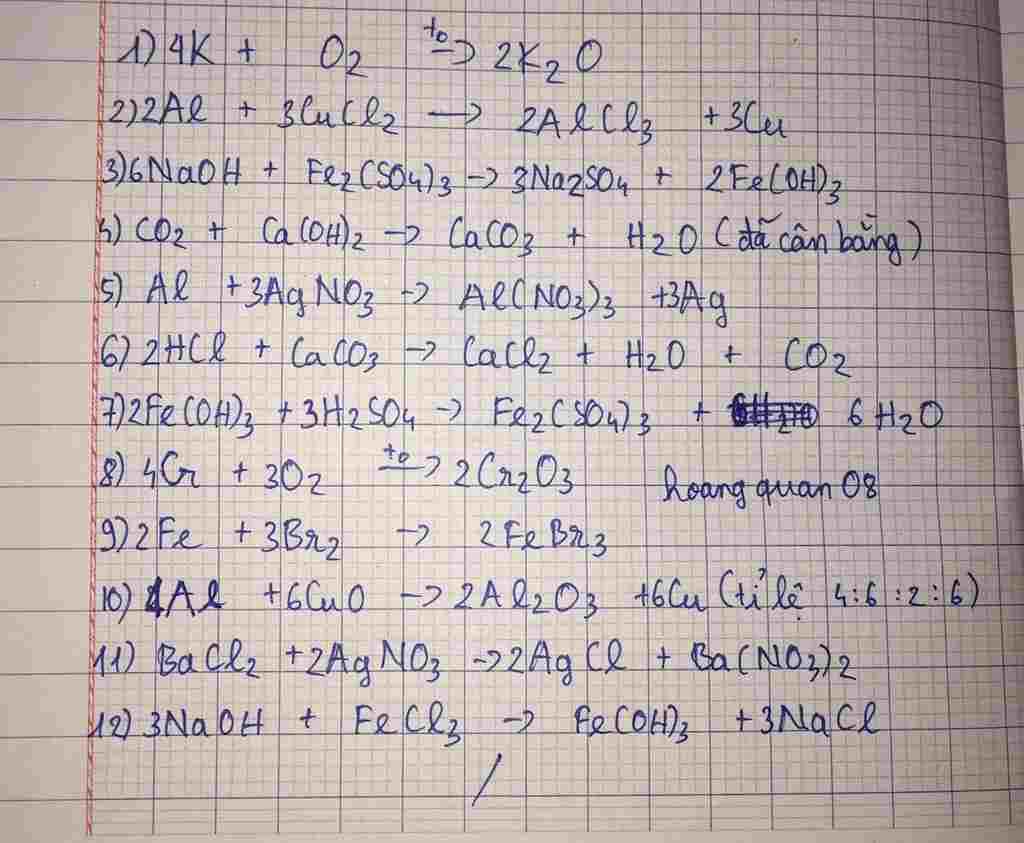 1) 4K + O2 to → 2K2O
2) 2Al + 3CuCl2 → 2AlCl3 + 3Cu
3) 6NaOH + Fe2(SO4)3 → 3Na2SO4 + 2Fe(OH)3
4) CO2 + Ca(OH)2 → CaCO3 + H2O (đã cân bằng)
5) Al + 3AgNO3 → Al(NO3)3 + 3Ag
6) 2HCl + CaCO3 → CaCl2 + H2O + CO2
7) 2Fe(OH)3 + 3H2SO4 → Fe2(SO4)3 + 6H2O
8) 4Cr + 3O2 to → 2Cr2O3 hoangquan08
9) 2Fe + 3Br2 → 2FeBr3
10) 4Al + 6CuO → 2Al2O3 + 6Cu (tỉ lệ 4:6:2:6)
11) BaCl2 + 2AgNO3 → 2AgCl + Ba(NO3)2
12) 3NaOH + FeCl3 → Fe(OH)3 + 3NaCl